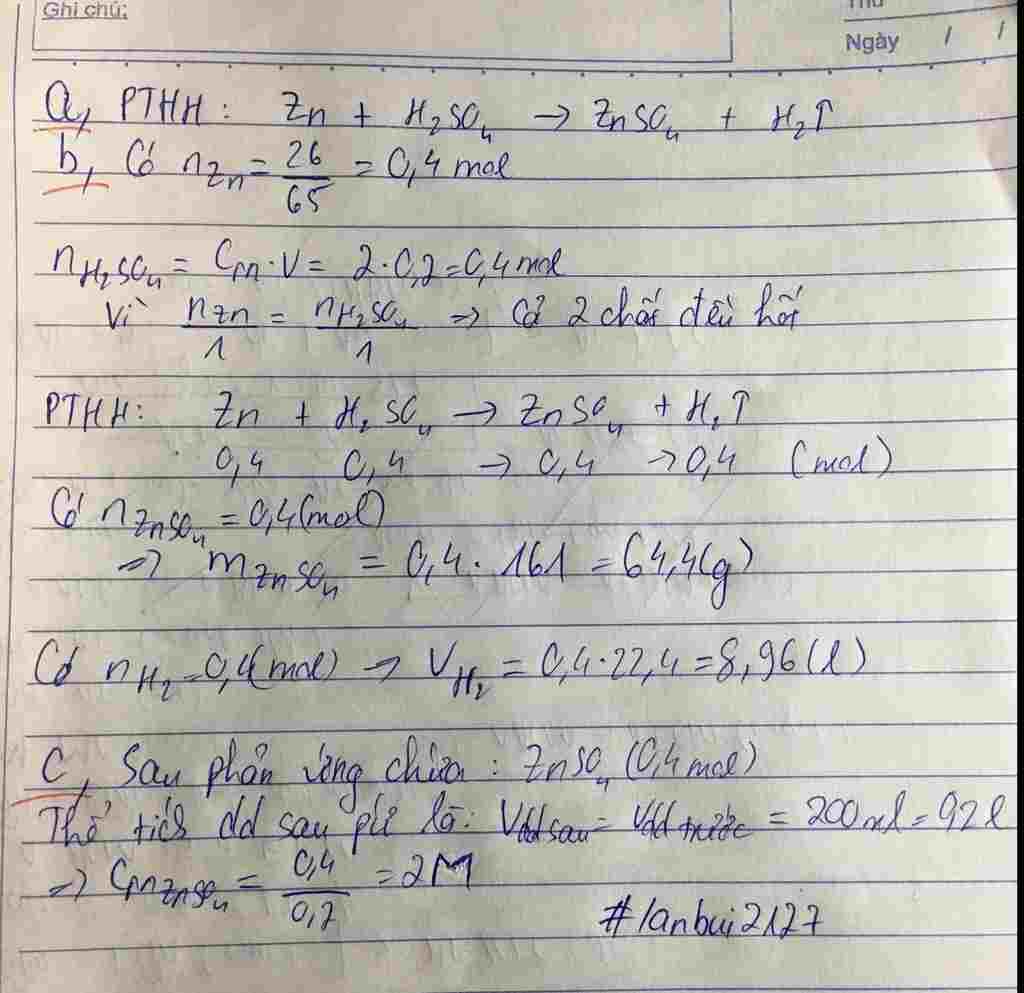 Ghi chú:
Thứ
Ngày / /
a, PTHH: Zn + H₂SO₄ → ZnSO₄ + H₂↑
b, Có nZn = 26/65 = 0,4 mol
nH₂SO₄ = CM.V = 2.0,2 = 0,4 mol
Vì nZn/1 = nH₂SO₄/1 => Cả 2 chất đều hết
PTHH: Zn + H₂SO₄ → ZnSO₄ + H₂↑
0,4 0,4 → 0,4 → 0,4 (mol)
Có nZnSO₄ = 0,4 (mol)
=> mZnSO₄ = 0,4.161 = 64,4 (g)
Có nH₂ = 0,4 (mol) → VH₂ = 0,4.22,4 = 8,96 (l)
c, Sau phản ứng chứa: ZnSO₄ (0,4 mol)
Thể tích dd sau pứ là: Vdd sau = Vdd trước = 200 ml = 0,2 l
=> CM ZnSO₄ = 0,4/0,2 = 2M
#lanbui2127